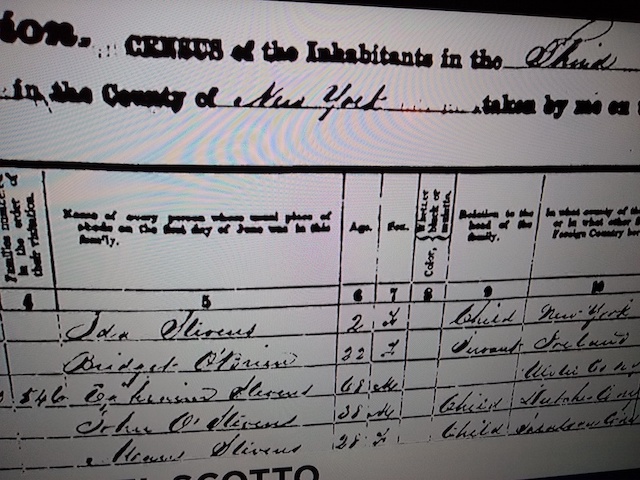 ion. CENSUS of the Inhabitants in the Third
in the County of New York taken by me on
in the order of their visitation.
Name of every person whose usual place of
abode on the first day of June was in this
family.
Age.
Sex.
Color,
Whether black or mulatto.
Relation to the
head of the
family.
In what county of the
or in what other
Foreign Country bor
4 5 6 7 8 9 10
Ida Stivens 2 F Child New York
Bridget O'Brien 22 F Servant Ireland
546 Stevens 68 M
John O' Stivens 38 M Child
Stivens 28 F Child
SCOTTO